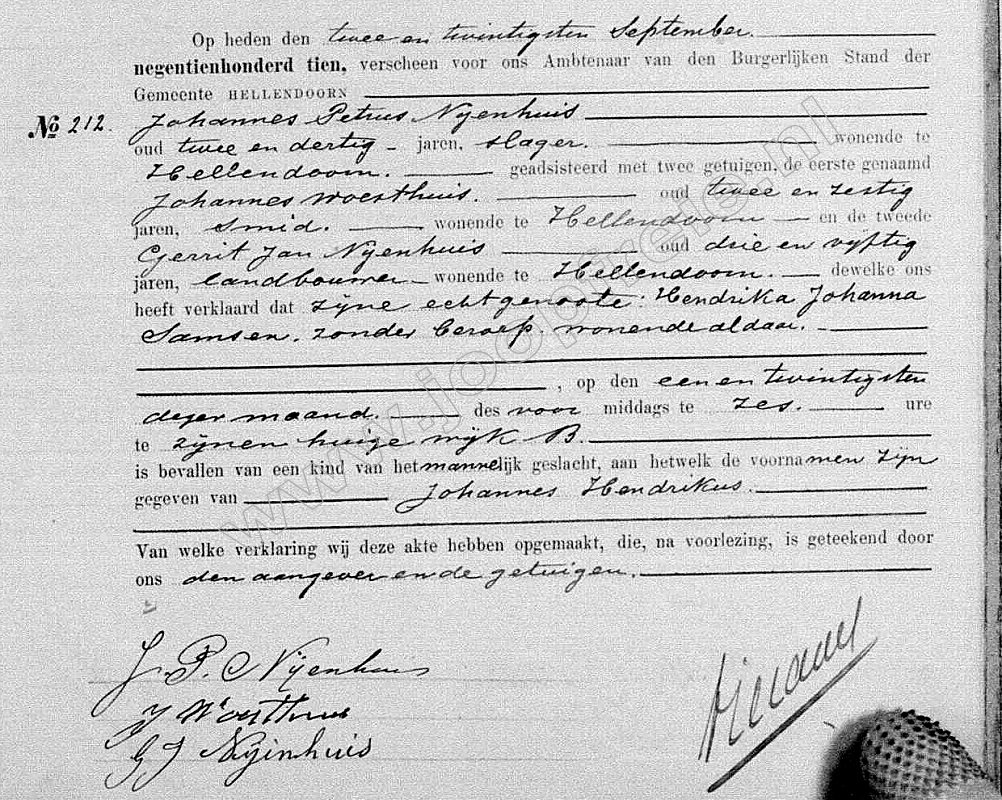 Op heden den twee en twintigsten September.
negentienhonderd tien, verscheen voor ons Ambtenaar van den Burgerlijken Stand der
Gemeente HELLENDOORN
No 212. Johannes Petrus Nijenhuis
oud twee en dertig jaren, slager. wonende te
Hellendoorn. geadsisteerd met twee getuigen, de eerste genaamd
Johannes Woesthuis. oud twee en zestig
jaren, Smid. wonende te Hellendoorn en de tweede
Gerrit Jan Nijenhuis oud drie en vijftig
jaren, landbouwer wonende te Hellendoorn. dewelke ons
heeft verklaard dat zijne echtgenoote: Hendrika Johanna
Samsen. zonder beroep. wonende aldaar.
, op den een en twintigsten
dezer maand. des voor middags te zes. ure
te zijnen huize wijk B.
is bevallen van een kind van het mannelijk geslacht, aan hetwelk de voornamen zijn
gegeven van Johannes Hendrikus.
Van welke verklaring wij deze akte hebben opgemaakt, die, na voorlezing, is geteekend door
ons den aangever en de getuigen.
J. P. Nijenhuis
J Woesthuis
G J Nijenhuis